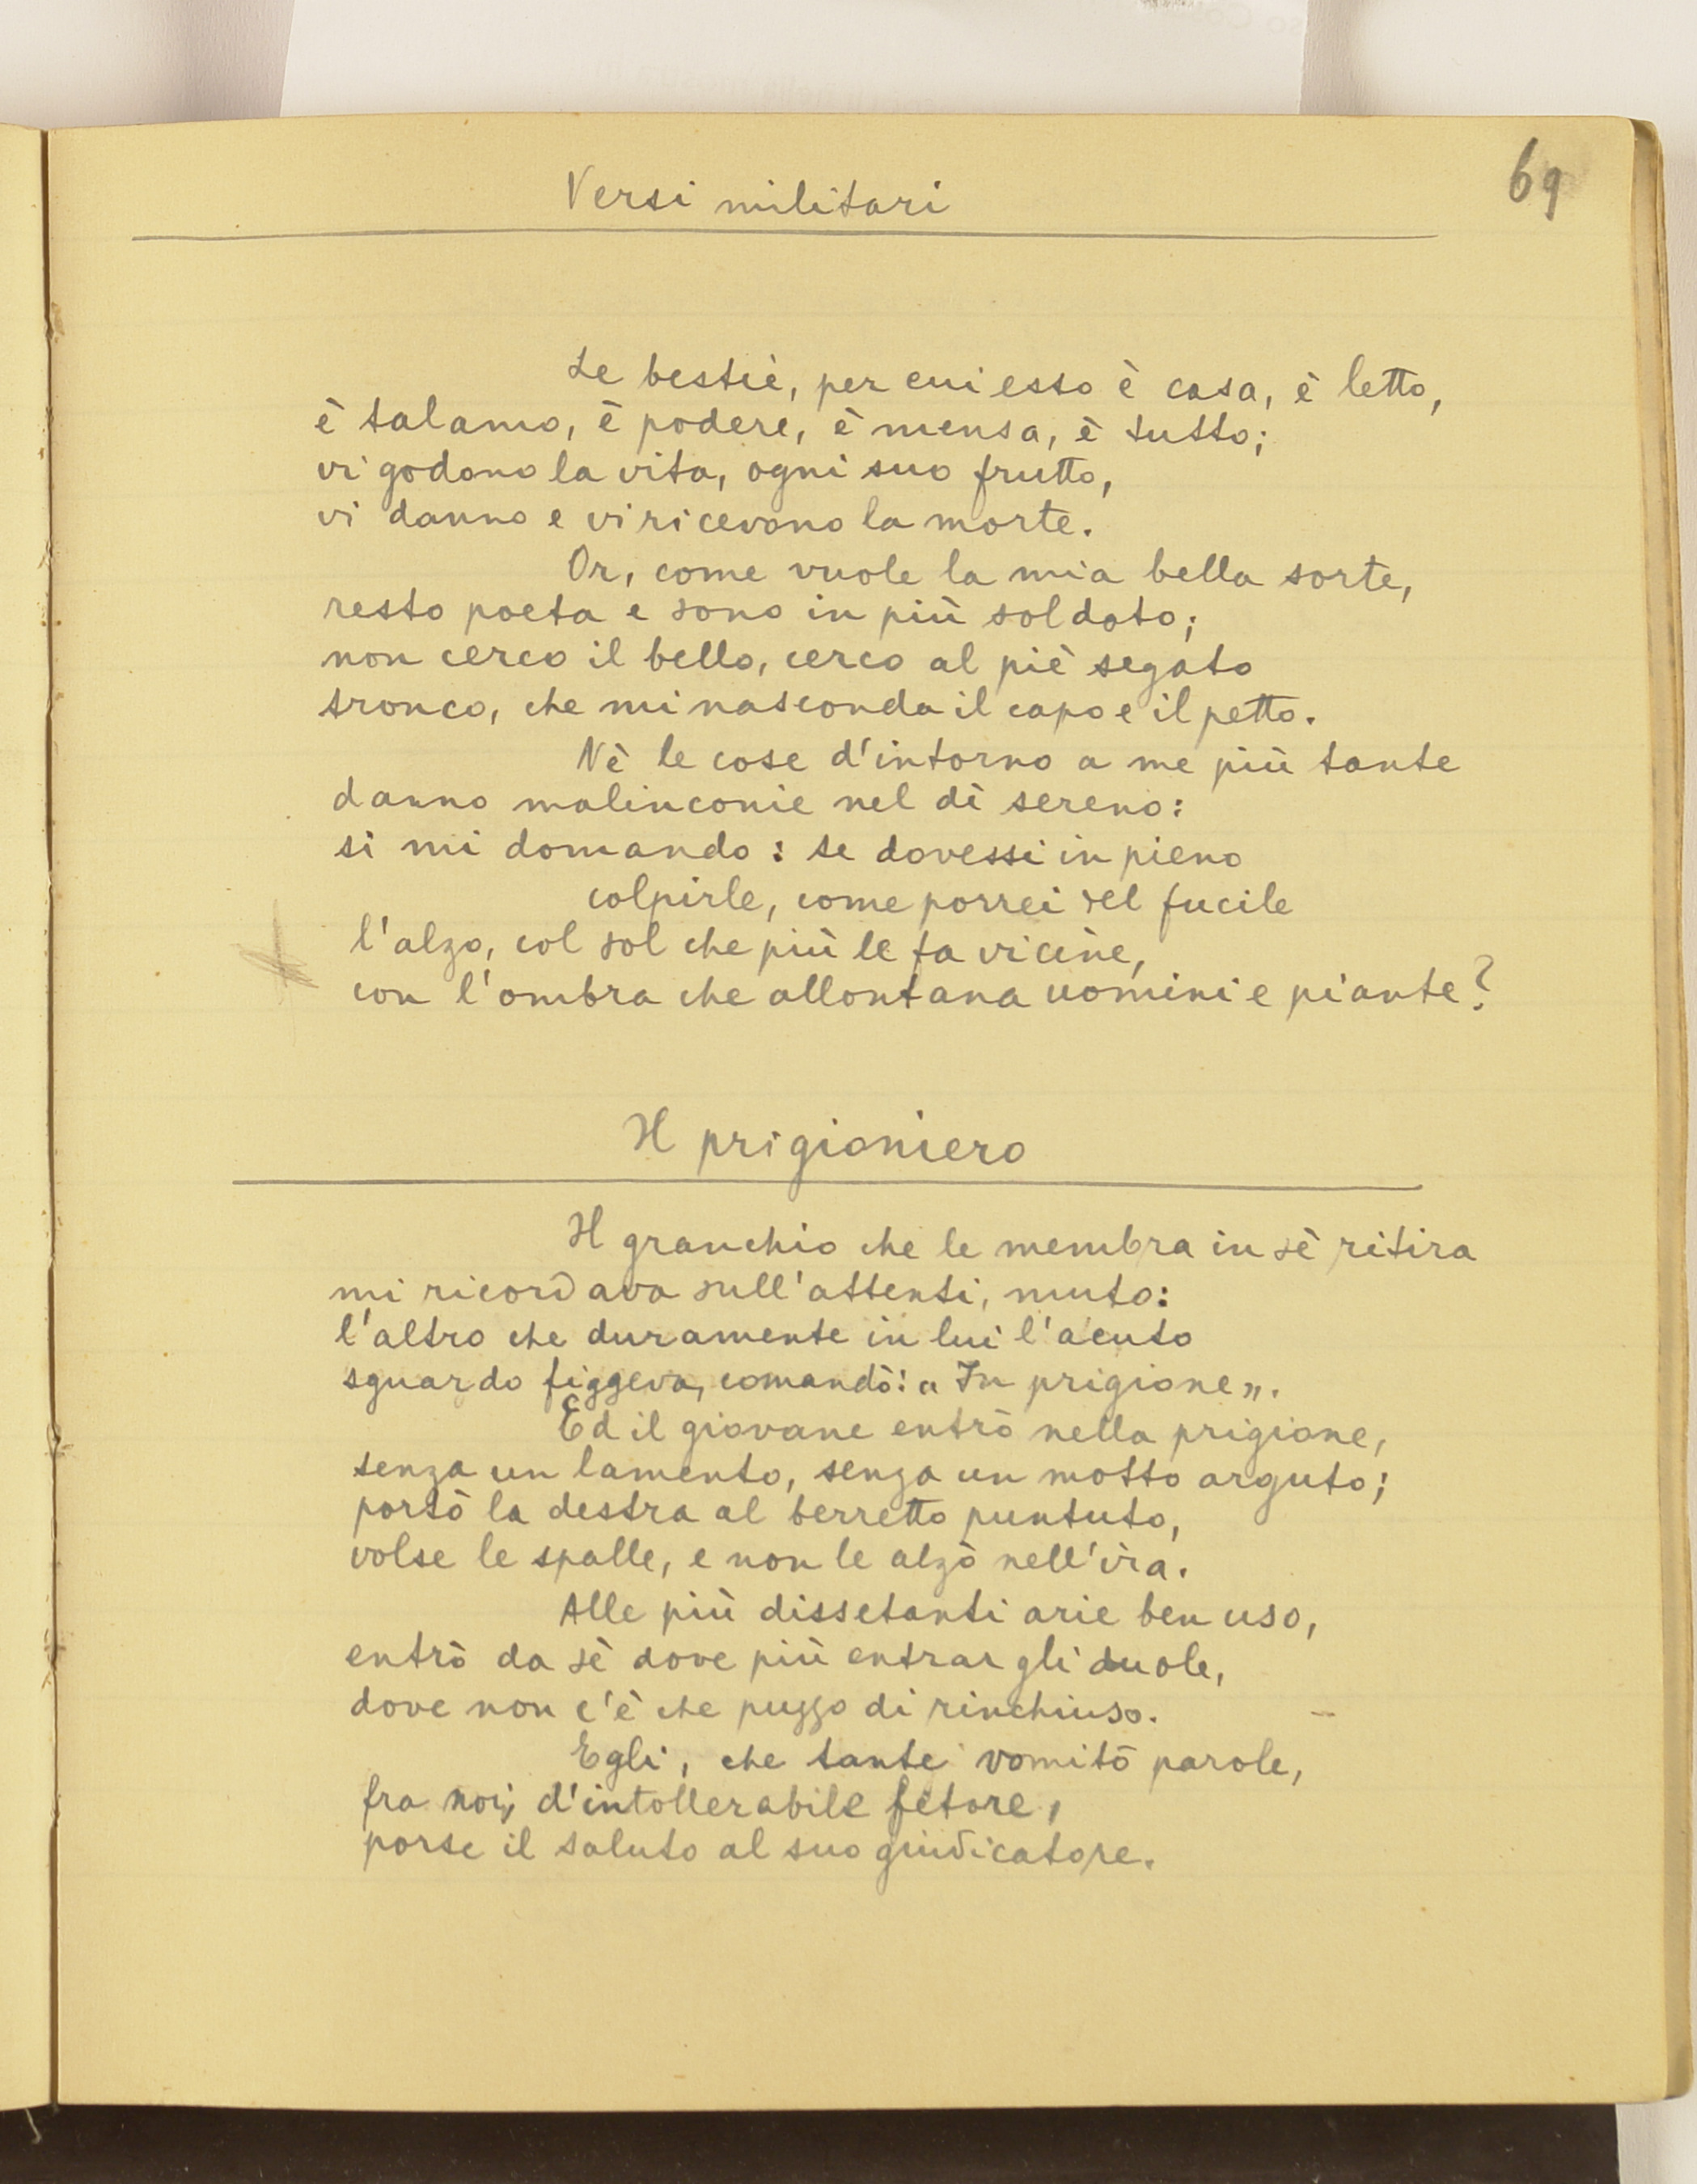 69
Versi militari
Le bestie, per cui esso è casa, è letto,
è talamo, è podere, è mensa, è tutto;
vi godono la vita, ogni suo frutto,
vi danno e vi ricevono la morte.
Or, come vuole la mia bella sorte,
resto poeta e sono in più soldato;
non cerco il bello, cerco al piè segato
tronco, che mi nasconda il capo e il petto.
Nè le cose d'intorno a me più tante
danno malinconie nel dì sereno:
si mi domando: se dovessi in pieno
colpirle, come porrei del fucile
l'alzo, col sol che più le fa vicine,
con l'ombra che allontana uomini e piante?
Il prigioniero
Il granchio che le membra in sè ritira
mi ricordava sull'attenti, muto:
l'altro che duramente in lui l'acuto
sguardo figgeva, comandò: « In prigione».
Ed il giovane entrò nella prigione,
senza un lamento, senza un motto arguto;
portò la destra al berretto puntuto,
volse le spalle, e non le alzò nell'ira.
Alle più dissetanti arie ben uso,
entrò da sè dove più entrar gli duole,
dove non c'è che puzzo di rinchiuso.
Egli, che tante vomitò parole,
fra noi, d'intollerabile fetore,
porse il saluto al suo giudicatore.